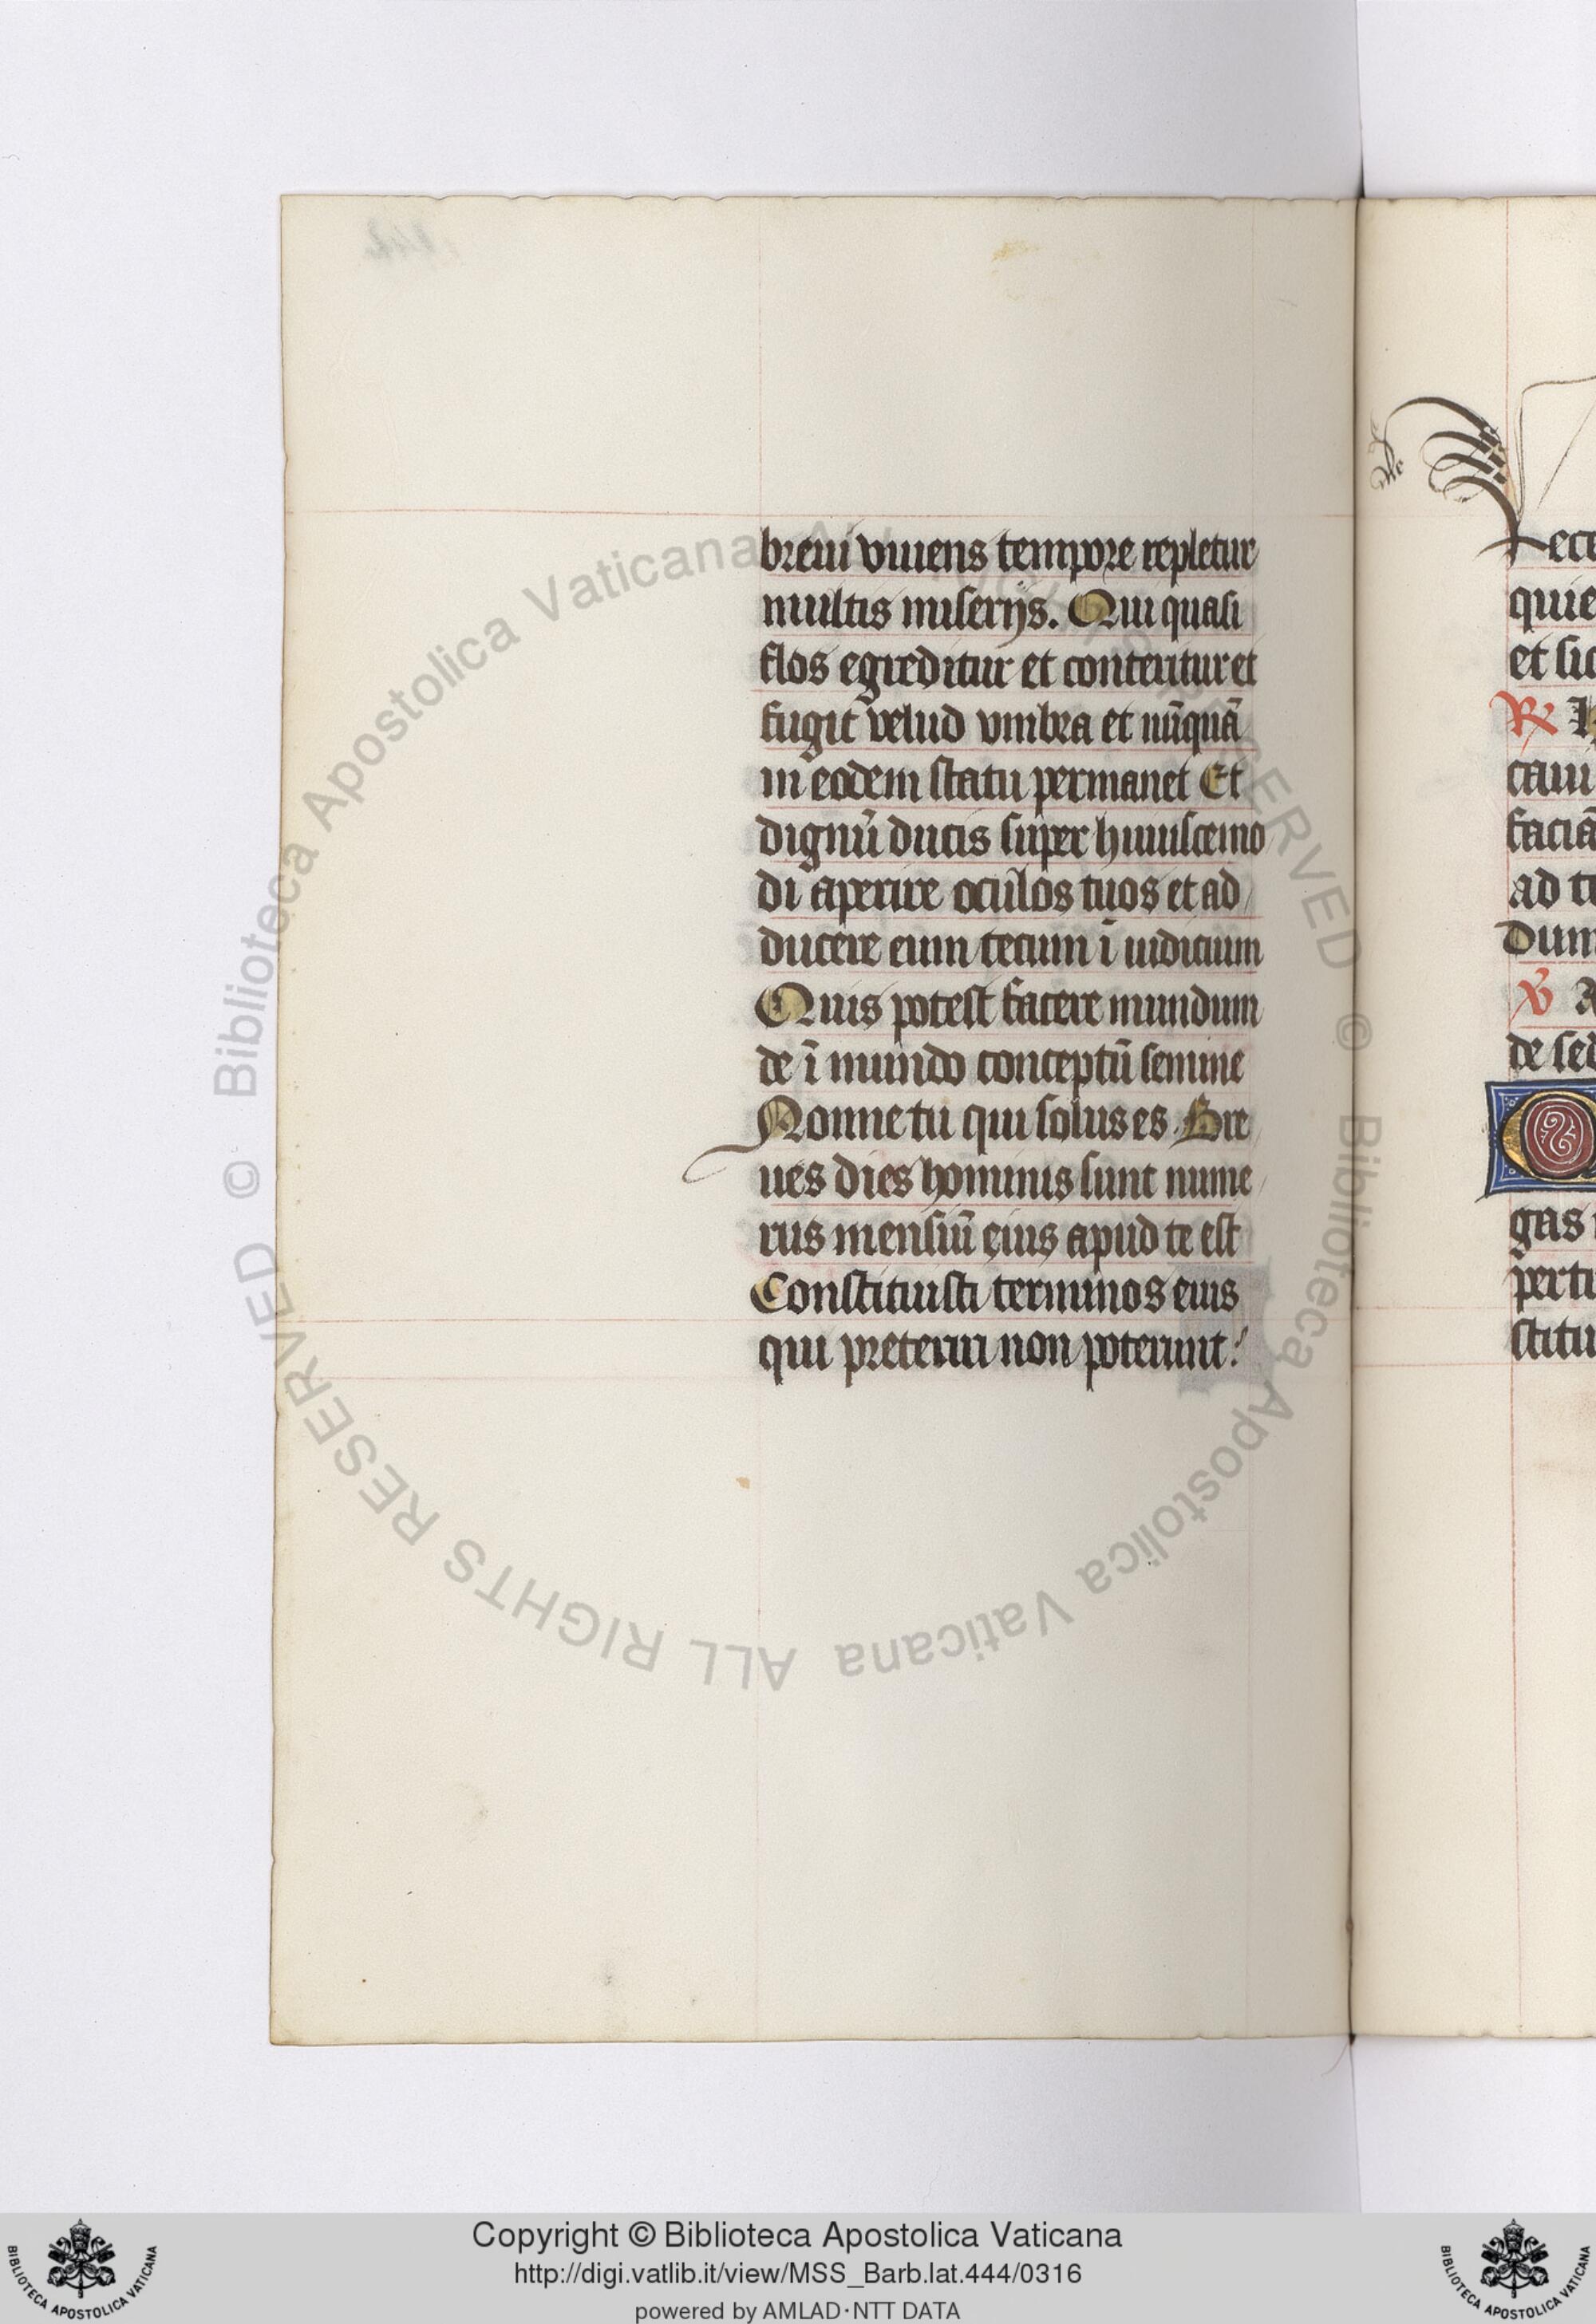 breui viuens tempore repletur
multis miserijs. Qui quasi
flos egreditur et conteritur et
fugit velud vmbra et nūquā
in eodem statu permanet Et
dignū ducis super huiuscemo
di aperire oculos tuos et ad
ducere eum tecum ī iudicium
Quis potest facere mundum
de ī mundo conceptū semine
Nonne tu qui solus es. Bre
ues dies hominis sunt nume
rus mensiū eius apud te est
Constituisti terminos eius
qui preteriri non poterunt.
quie
et sic
R
caui
faciā
ad
Dum
V A
de sed
gas
pertu
stitu
© Biblioteca Apostolica Vaticana ALL RIGHTS RESERVED © Biblioteca Apostolica Vaticana ALL RIGHTS RESERVED
Copyright © Biblioteca Apostolica Vaticana
http://digi.vatlib.it/view/MSS_Barb.lat.444/0316
powered by AMLAD·NTT DATA
BIBLIOTECA APOSTOLICA VATICANA
BIBLIOTECA APOSTOLICA VATICANA